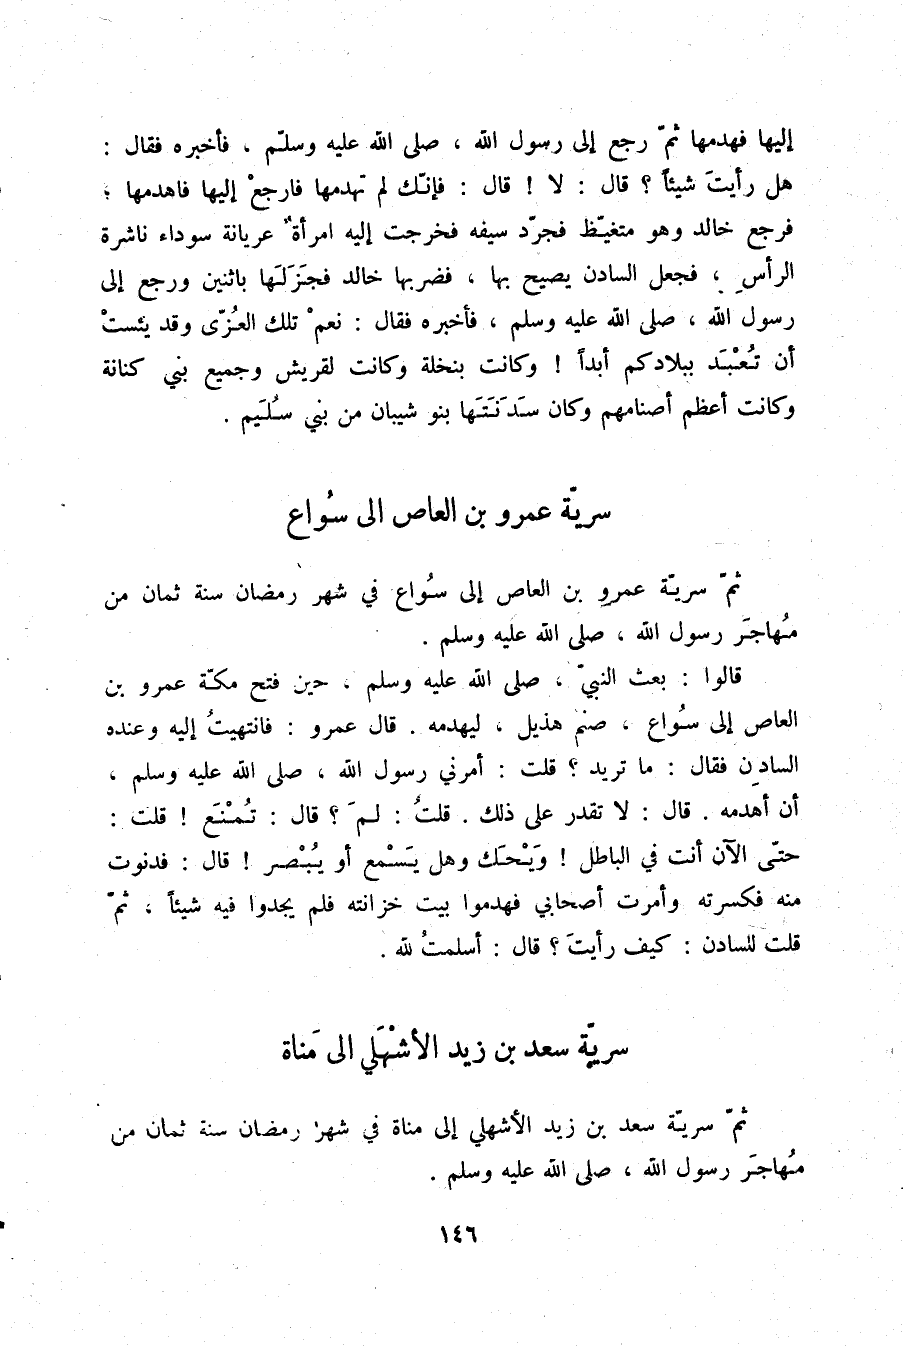 إليها فهدمها ثمّ رجع إلى رسول الله ، صلى الله عليه وسلّم ، فأخبره فقال :
هل رأيتَ شيئاً ؟ قال : لا ! قال : فإنّك لم تهدمها فارجعْ إليها فاهدمها ؛
فرجع خالد وهو متغيّظ فجرّد سيفه فخرجت إليه امرأةٌ عريانة سوداء ناشرة
الرأسِ ، فجعل السادن يصيح بها ، فضربها خالد فجَزَلَها باثنين ورجع إلى
رسول الله ، صلى الله عليه وسلم ، فأخبره فقال : نعمْ تلك العُزّى وقد يئستْ
أن تُعْبَد ببلادكم أبداً ! وكانت بنخلة وكانت لقريش وجميع بني كنانة
وكانت أعظم أصنامهم وكان سَدَنَتَها بنو شيبان من بني سُلَيم .
سريّة عمرو بن العاص الى سُواع
ثمّ سريّة عمرو بن العاص إلى سُواع في شهر رمضان سنة ثمان من
مُهاجَر رسول الله ، صلى الله عليه وسلم .
قالوا : بعث النبيّ ، صلى الله عليه وسلم ، حين فتح مكّة عمرو بن
العاص إلى سُواع ، صنم هذيل ، ليهدمه . قال عمرو : فانتهيتُ إليه وعنده
السادن فقال : ما تريد ؟ قلت : أمرني رسول الله ، صلى الله عليه وسلم ،
أن أهدمه . قال : لا تقدر على ذلك . قلتُ : لمَ ؟ قال : تُمْنَع ! قلت :
حتّى الآن أنت في الباطل ! وَيْحَك وهل يَسْمع أو يُبْصر ! قال : فدنوت
منه فكسرته وأمرت أصحابي فهدموا بيت خزانته فلم يجدوا فيه شيئاً ، ثمّ
قلت للسادن : كيف رأيتَ ؟ قال : أسلمتُ لله .
سريّة سعد بن زيد الأشْهَلي الى مَناة
ثمّ سريّة سعد بن زيد الأشهلي إلى مناة في شهر رمضان سنة ثمان من
مُهاجَر رسول الله ، صلى الله عليه وسلم .
١٤٦